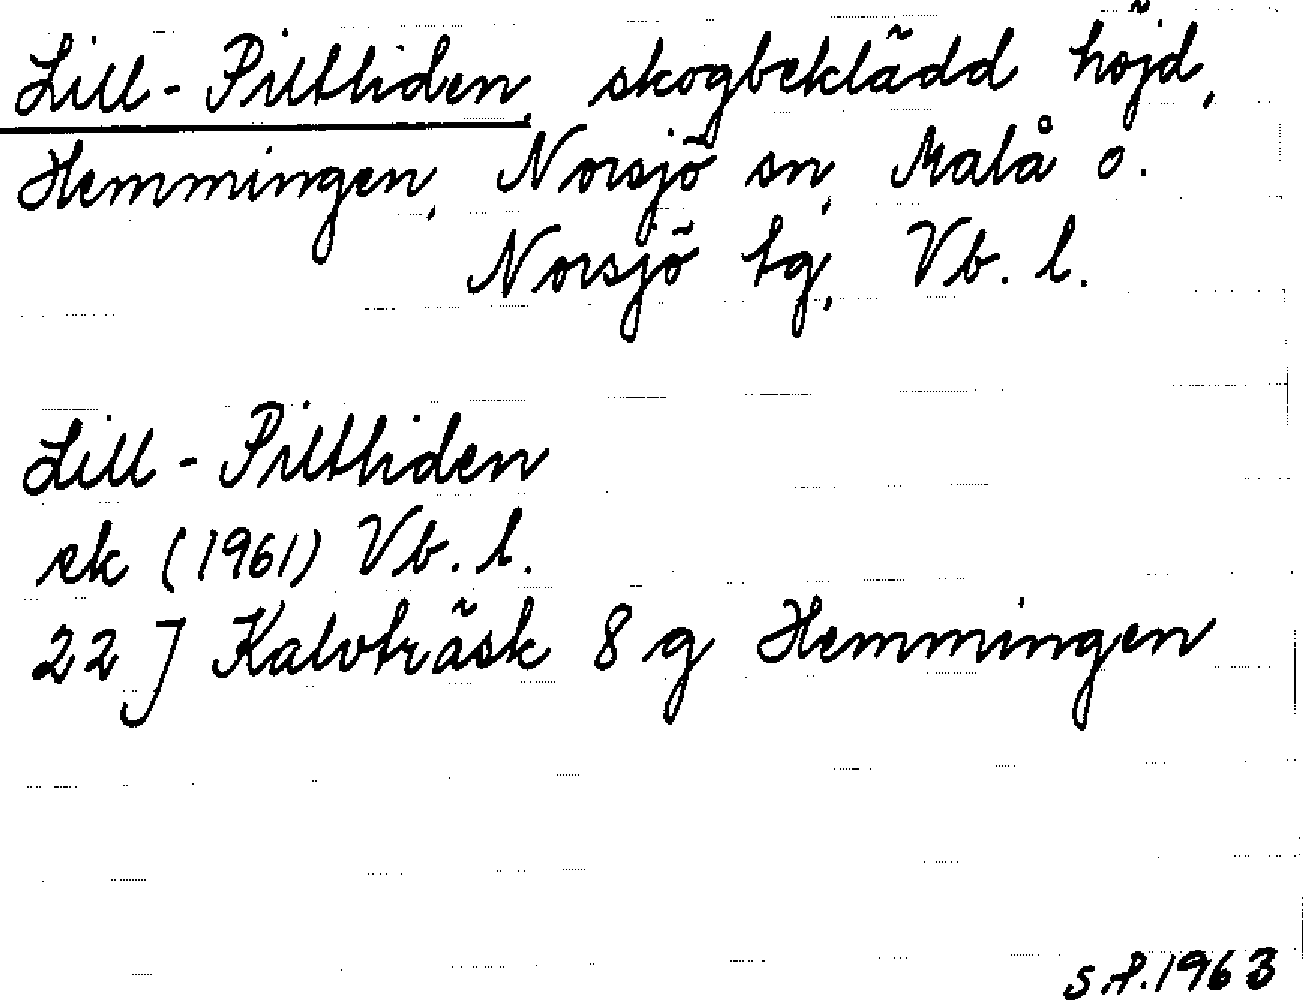 Lill-Piltliden, skogbeklädd höjd,
Hemmingen, Norsjö sn, Malå o.
Norsjö tg, Vb. l.
Lill-Piltliden
ek (1961) Vb. l.
22 J Kalvträsk 8 g Hemmingen
S.P. 1963